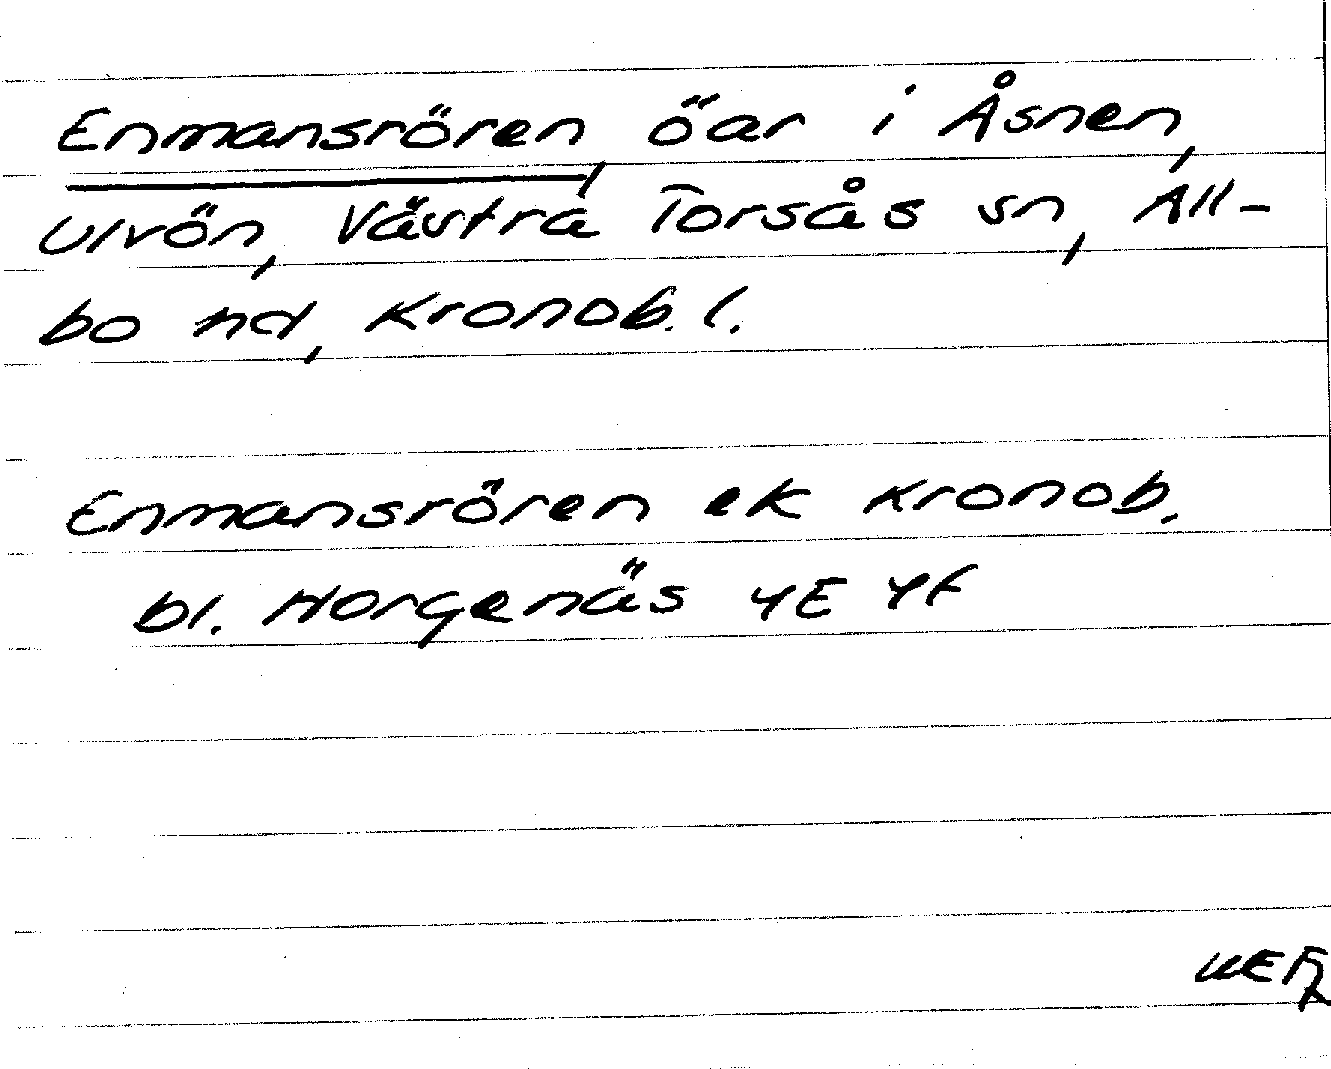 Enmansrören, öar i Åsnen,
Ulvön, Västra Torsås sn, All-
bo hd, Kronob. l.
Enmansrören ek Kronob.
bl. Horgenäs 4E 4F